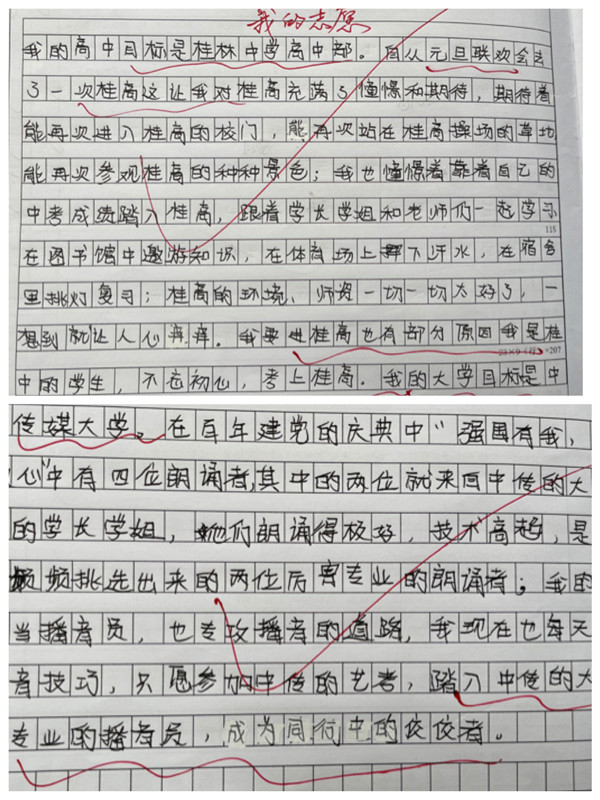 我的志愿
我的高中目标是桂林中学高中部。自从元旦联欢会去
了一次桂高这让我对桂高充满了憧憬和期待，期待着
能再次进入桂高的校门，能再次站在桂高操场的草地
能再次参观桂高的种种景色；我也憧憬着靠着自己的
中考成绩踏入桂高，跟着学长学姐和老师们一起学习
115
在图书馆中遨游知识，在体育场上挥下汗水，在宿舍
里挑灯复习；桂高的环境、师资一切一切太好了，一
想到就让人心痒痒。我要进桂高也有部分原因我是桂
23×9＝207
中的学生，不忘初心，考上桂高。我的大学目标是中
传媒大学。在百年建党的庆典中“强国有我，
心”中有四位朗诵者，其中的两位就来自中传的大
的学长学姐，她们朗诵得极好，技术高超，是
频频挑选出来的两位厉害专业的朗诵者；我的
当播音员，也专攻播音的道路，我现在也每天
音技巧，只愿参加中传的艺考，踏入中传的大
专业的播音员，成为同行中的佼佼者。